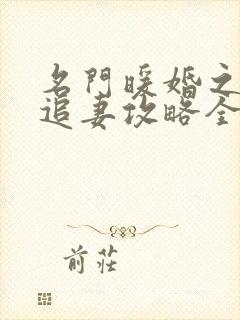 名門暖婚之
追妻攻略全
前莊